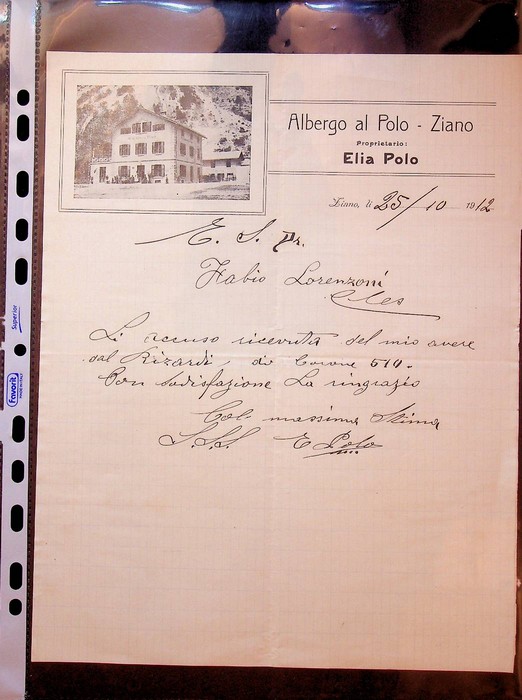 Albergo al Polo - Ziano
Proprietario:
Elia Polo
Ziano, li 25/10 1912
E. S. Dr.
Fabio Lorenzoni
Cles
Li accuso ricevuta del mio avere
dal Rizardi di Corone 514.
Con sodisfazione La ringrazio
Col massima Stima
S.S.S. E Polo
Superior
Favorit
MADE IN ITALY